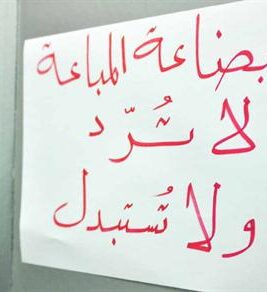 بضاعة المباعة
لا تُرّد
ولا تُستبدل